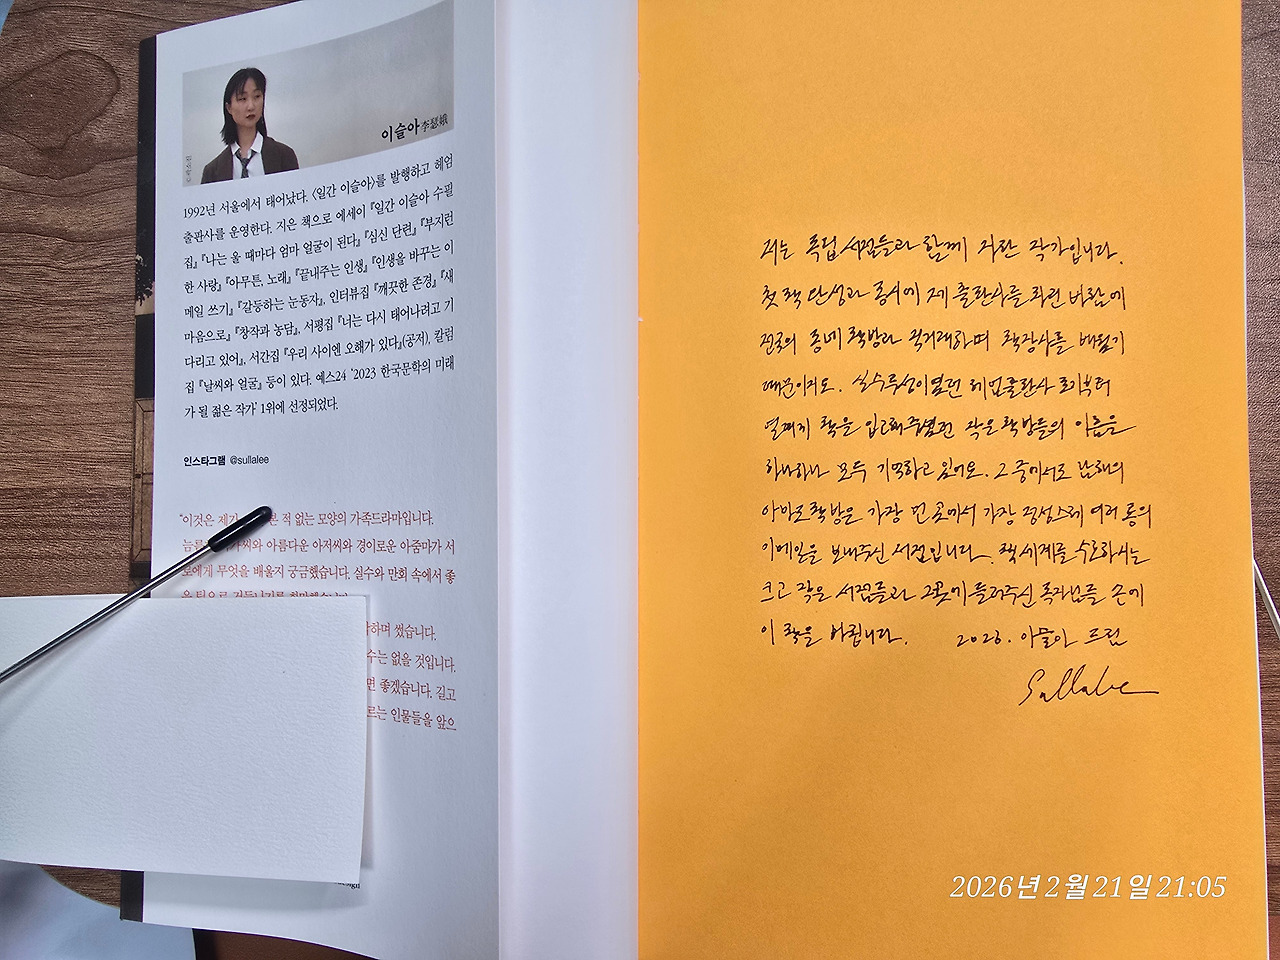 이슬아 李瑟娥
1992년 서울에서 태어났다. 〈일간 이슬아〉를 발행하고 헤엄
출판사를 운영한다. 지은 책으로 에세이 『일간 이슬아 수필
집』 『나는 울 때마다 엄마 얼굴이 된다』 『심신 단련』 『부지런
한 사랑』 『아무튼, 노래』 『끝내주는 인생』 『인생을 바꾸는 이
메일 쓰기』 『갈등하는 눈동자』, 인터뷰집 『깨끗한 존경』 『새
마음으로』 『창작과 농담』, 서평집 『너는 다시 태어나려고 기
다리고 있어』, 서간집 『우리 사이엔 오해가 있다』(공저), 칼럼
집 『날씨와 얼굴』 등이 있다. 예스24 ‘2023 한국문학의 미래
가 될 젊은 작가’ 1위에 선정되었다.
인스타그램 @sullalee
“이것은 제가 본 적 없는 모양의 가족드라마입니다.
아름다운 아저씨와 경이로운 아줌마가 서
로에게 무엇을 배울지 궁금했습니다. 실수와 만회 속에서 좋
은 팀으로
하며 썼습니다.
수는 없을 것입니다.
면 좋겠습니다. 길고
르는 인물들을 앞으
design
저는 독립 서점들과 함께 자란 작가입니다.
첫 책 탄생과 동시에 제 출판사를 차린 바람에
전국의 동네 책방과 직거래하며 책장사를 배웠기
때문이지요. 실수투성이였던 헤엄출판사 초기부터
열제히 책을 입고해주셨던 작은 책방들의 이름을
하나하나 모두 기억하고 있어요. 그 중에서도 남해의
아마도책방은 가장 먼 곳에서 가장 정성스레 여러 통의
이메일을 보내주신 서점입니다. 책 세계를 수호하시는
크고 작은 서점들과 그곳에 들러주신 독자님들 손에
이 책을 바칩니다. 2026. 이슬아 드림
Sullalee
2026년 2월 21일 21:05